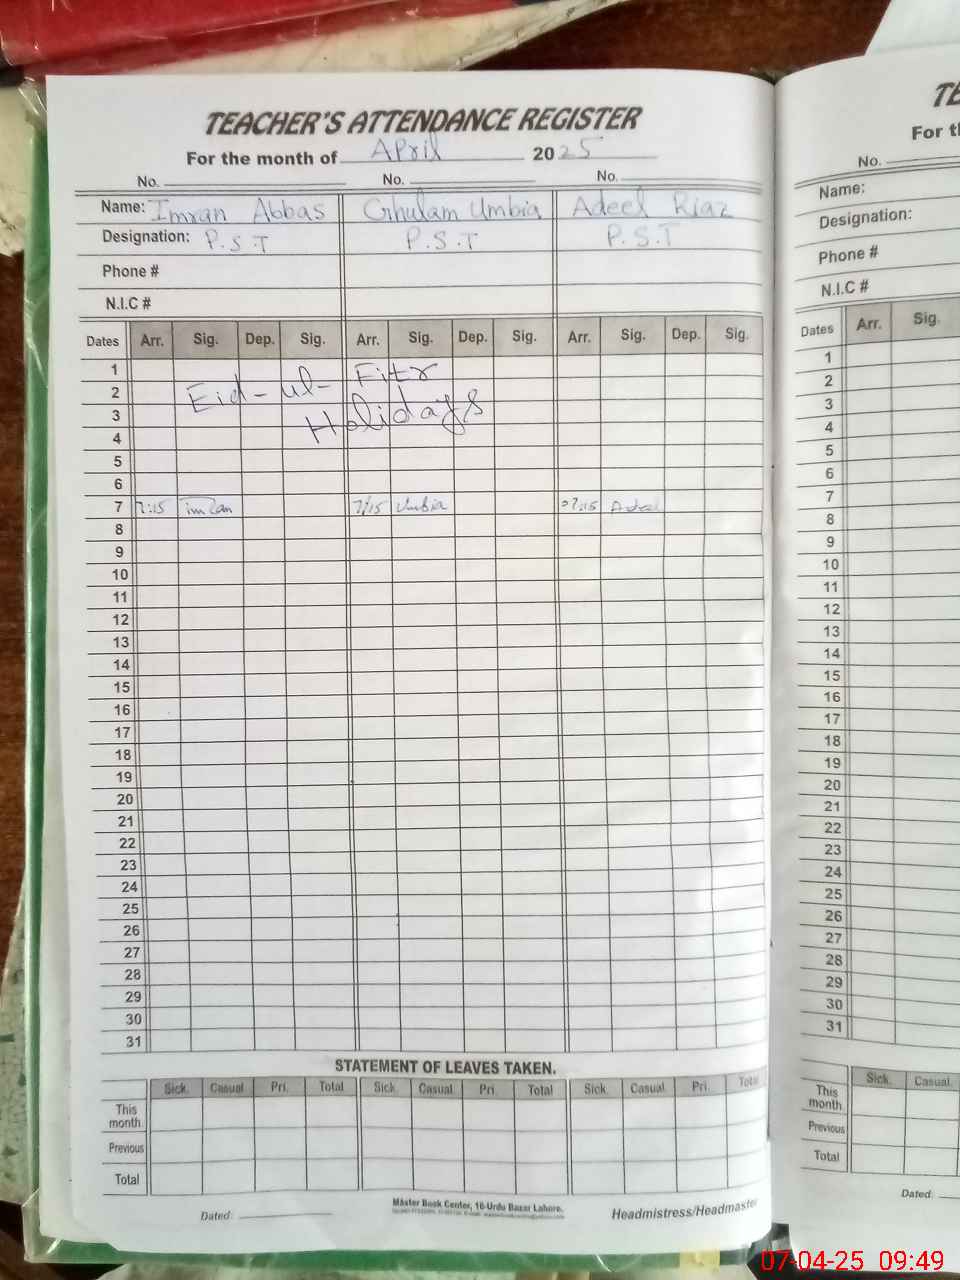 TEACHER'S ATTENDANCE REGISTER
For the month of April 2025
No. No. No.
Name: Imran Abbas Ghulam Umbia Adeel Riaz
Designation: P.S.T P.S.T P.S.T
Phone #
N.I.C #
Dates Arr. Sig. Dep. Sig. Arr. Sig. Dep. Sig. Arr. Sig. Dep. Sig.
1
2 Eid-ul-Fitr
3 Holidays
4
5
6
7 7:15 imran 7/15 Umbia 07:15 Adeel
8
9
10
11
12
13
14
15
16
17
18
19
20
21
22
23
24
25
26
27
28
29
30
31
STATEMENT OF LEAVES TAKEN.
Sick. Casual. Pri. Total Sick. Casual. Pri. Total Sick. Casual. Pri. Total
This month
Previous
Total
Master Book Center, 16-Urdu Bazar Lahore.
Dated: Headmistress/Headmaster
TE
For th
No.
Name:
Designation:
Phone #
N.I.C #
Dates Arr. Sig.
1
2
3
4
5
6
7
8
9
10
11
12
13
14
15
16
17
18
19
20
21
22
23
24
25
26
27
28
29
30
31
Sick. Casual.
This month
Previous
Total
Dated:
07-04-25 09:49